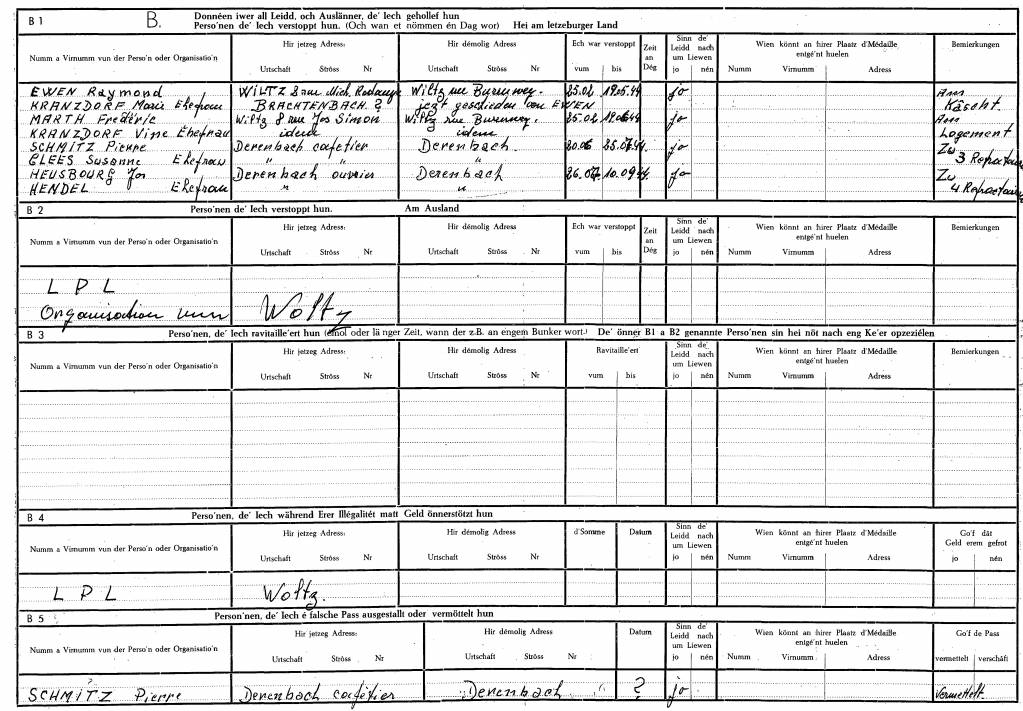 B 1 B. Donnéen iwer all Leidd, och Auslänner, de' Iech gehollef hun
Perso'nen de' Iech verstoppt hun. (Och wan et nömmen én Dag wor) Hei am letzeburger Land
Numm a Virnumm vun der Perso'n oder Organisatio'n Hir jetzeg Adress: Hir démolig Adress Ech war verstoppt Zeit an Dég Sinn de' Leidd nach um Liewen Wien könnt an hirer Plaatz d'Médaille entgé'nt huelen Bemierkungen
Urtschaft Ströss Nr Urtschaft Ströss Nr vum bis jo nén Numm Virnumm Adress
EWEN Raymond WILTZ 8 rue Mich. Wiltz rue 25.02 jo Am
KRANZDORF Marie Ehefrau BRACHTENBACH ? jezt geschieden von EWEN Käscht.
MARTH Frédéric Wiltz 8 rue Jos Simon Wiltz rue 25.02 jo Am
KRANZDORF Ehefrau idem idem Logement
SCHMITZ Pierre Derenbach cafetier Derenbach. 25.07.44. jo Zu
CLEES Susanne Ehefrau " " " 3 Refractaire
HEUSBOURG Jos Derenbach ouvrier Derenbach 26.07 10.09.44. jo Zu
HENDEL Ehefrau " " 4 Refractaire
B 2 Perso'nen de' Iech verstoppt hun. Am Ausland
Numm a Virnumm vun der Perso'n oder Organisatio'n Hir jetzeg Adress: Hir démolig Adress Ech war verstoppt Zeit an Dég Sinn de' Leidd nach um Liewen Wien könnt an hirer Plaatz d'Médaille entgé'nt huelen Bemierkungen
Urtschaft Ströss Nr Urtschaft Ströss Nr vum bis jo nén Numm Virnumm Adress
L P L
Organisation vun Woltz
B 3 Perso'nen, de' Iech ravitaille'ert hun (émol oder länger Zeit, wann der z.B. an engem Bunker wort.) De' önner B1 a B2 genannte Perso'nen sin hei nöt nach eng Ke'er opzeziélen
Numm a Virnumm vun der Perso'n oder Organisatio'n Hir jetzeg Adress: Hir démolig Adress Ravitaille'ert Sinn de' Leidd nach um Liewen Wien könnt an hirer Plaatz d'Médaille entgé'nt huelen Bemierkungen
Urtschaft Ströss Nr Urtschaft Ströss Nr vum bis jo nén Numm Virnumm Adress
B 4 Perso'nen, de' Iech während Erer Illégalitét matt Geld önnerstötzt hun
Numm a Virnumm vun der Perso'n oder Organisatio'n Hir jetzeg Adress: Hir démolig Adress d'Somme Datum Sinn de' Leidd nach um Liewen Wien könnt an hirer Plaatz d'Médaille entgé'nt huelen Go'f dât Geld erem gefrot
Urtschaft Ströss Nr Urtschaft Ströss Nr jo nén Numm Virnumm Adress jo nén
L P L Woltz.
B 5 Person'nen, de' Iech é falsche Pass ausgestallt oder vermöttelt hun
Numm a Virnumm vun der Perso'n oder Organisatio'n Hir jetzeg Adress: Hir démolig Adress Datum Sinn de' Leidd nach um Liewen Wien könnt an hirer Plaatz d'Médaille entgé'nt huelen Go'f de Pass
Urtschaft Ströss Nr Urtschaft Ströss Nr jo nén Numm Virnumm Adress vermettelt verschâft
SCHMITZ Pierre Derenbach cafétier Derenbach " ? jo Vermettelt.